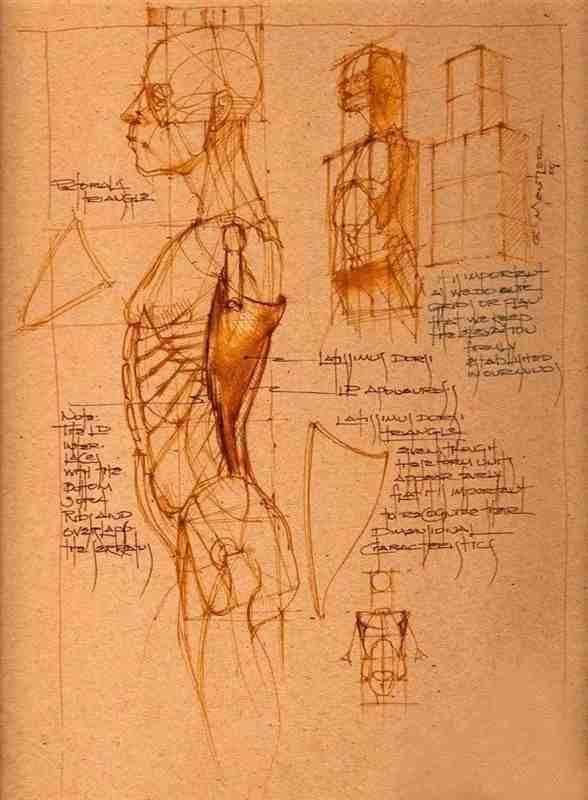 PETORALIS
TRIANGLE
IT IS IMPORTANT
AS WE DO OUR
GRIDS OR PLAN
THAT WE KEEP
THE ELEVATION
FIRMLY
ESTABLISHED
IN OUR MINDS
LATISSIMUS DORSI
LD APONEUROSIS
LATISSIMUS DORSI
TRIANGLE
EVEN THOUGH
THESE FORM UNITS
APPEAR FAIRLY
FLAT IT'S IMPORTANT
TO RECOGNIZE THEIR
DIMENSIONAL
CHARACTERISTICS
NOTE:
THE LD
INTER-
LACES
WITH THE
BOTTOM
RIBS AND
OVERLAPS
THE SERRATUS